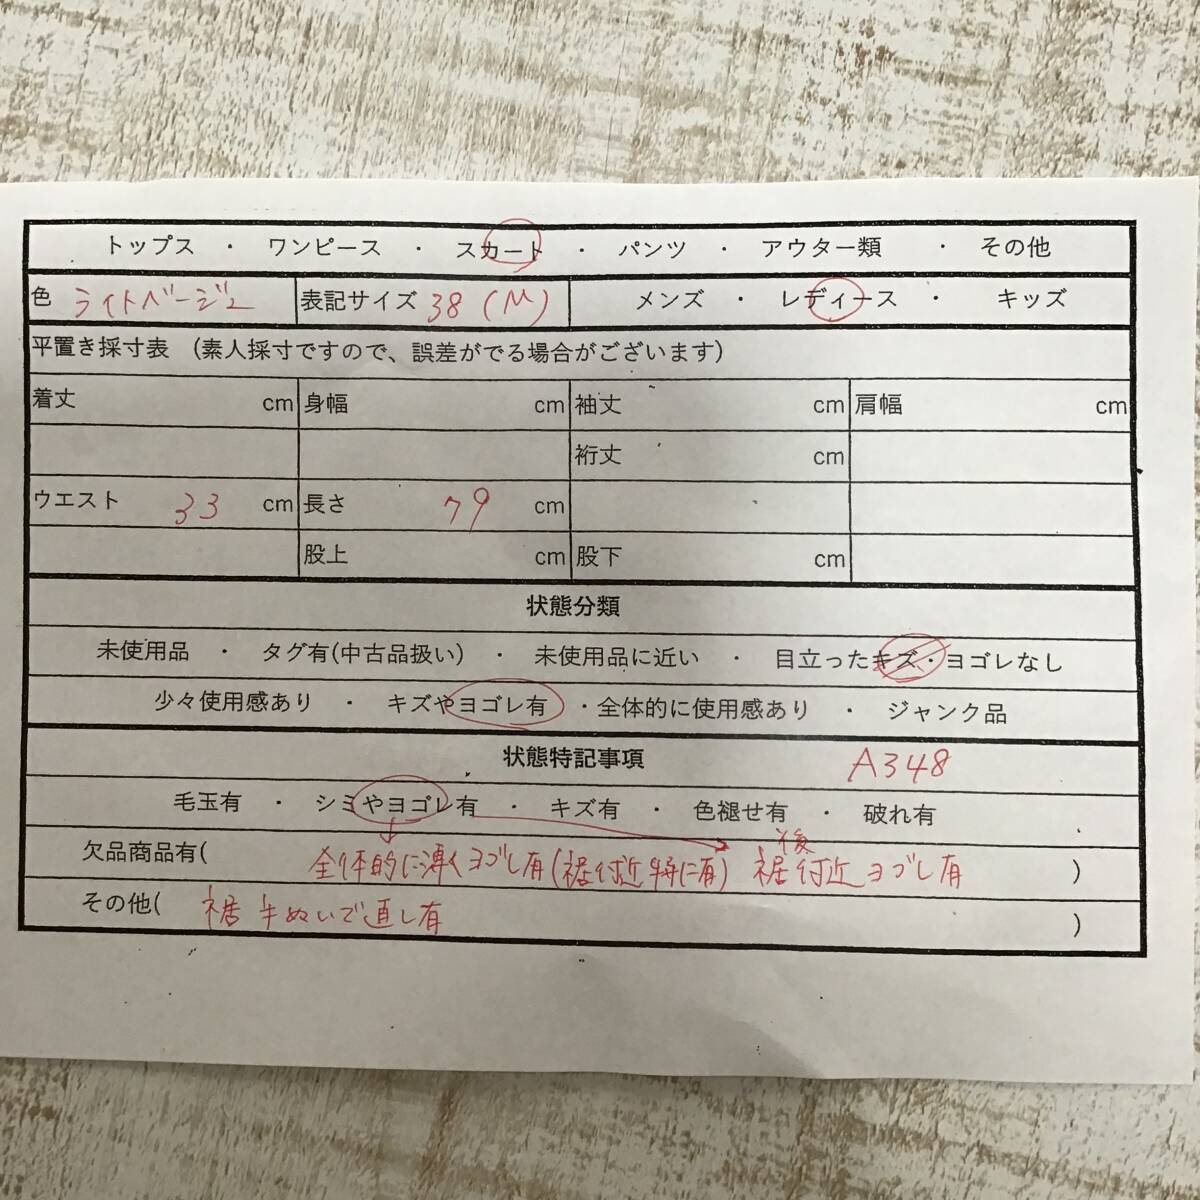 トップス ・ ワンピース ・ スカート ・ パンツ ・ アウター類 ・ その他
色 ライトベージュ 表記サイズ 38(M) メンズ ・ レディース ・ キッズ
平置き採寸表 (素人採寸ですので、誤差がでる場合がございます)
着丈 cm 身幅 cm 袖丈 cm 肩幅 cm
裄丈 cm
ウエスト 33 cm 長さ 79 cm
股上 cm 股下 cm
状態分類
未使用品 ・ タグ有(中古品扱い) ・ 未使用品に近い ・ 目立ったキズ・ヨゴレなし
少々使用感あり ・ キズやヨゴレ有 ・全体的に使用感あり ・ ジャンク品
状態特記事項 A348
毛玉有 ・ シミやヨゴレ有 ・ キズ有 ・ 色褪せ有 ・ 破れ有
後
欠品商品有( 全体的に薄くヨゴレ有(裾付近特に有) 裾付近ヨゴレ有 )
その他( 裾 手ぬいで直し有 )